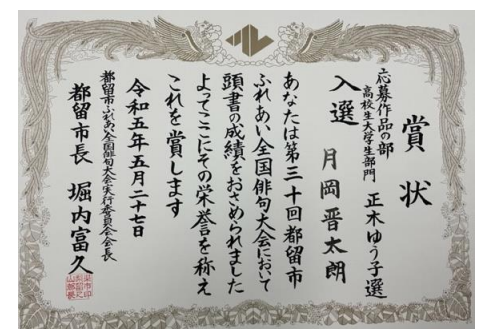 賞状
応募作品の部
高校生大学生部門
正木ゆう子選
入選
月岡晋太朗
あなたは第三十回都留市
ふれあい全国俳句大会において
頭書の成績をおさめられました
よってここにその栄誉を称え
これを賞します
令和五年五月二十七日
都留市ふれあい全国俳句大会実行委員会会長
都留市長 堀内富久